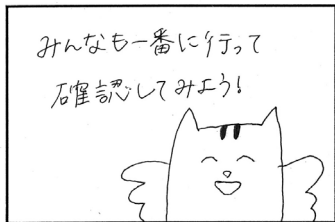 みんなも一番に行って
確認してみよう!